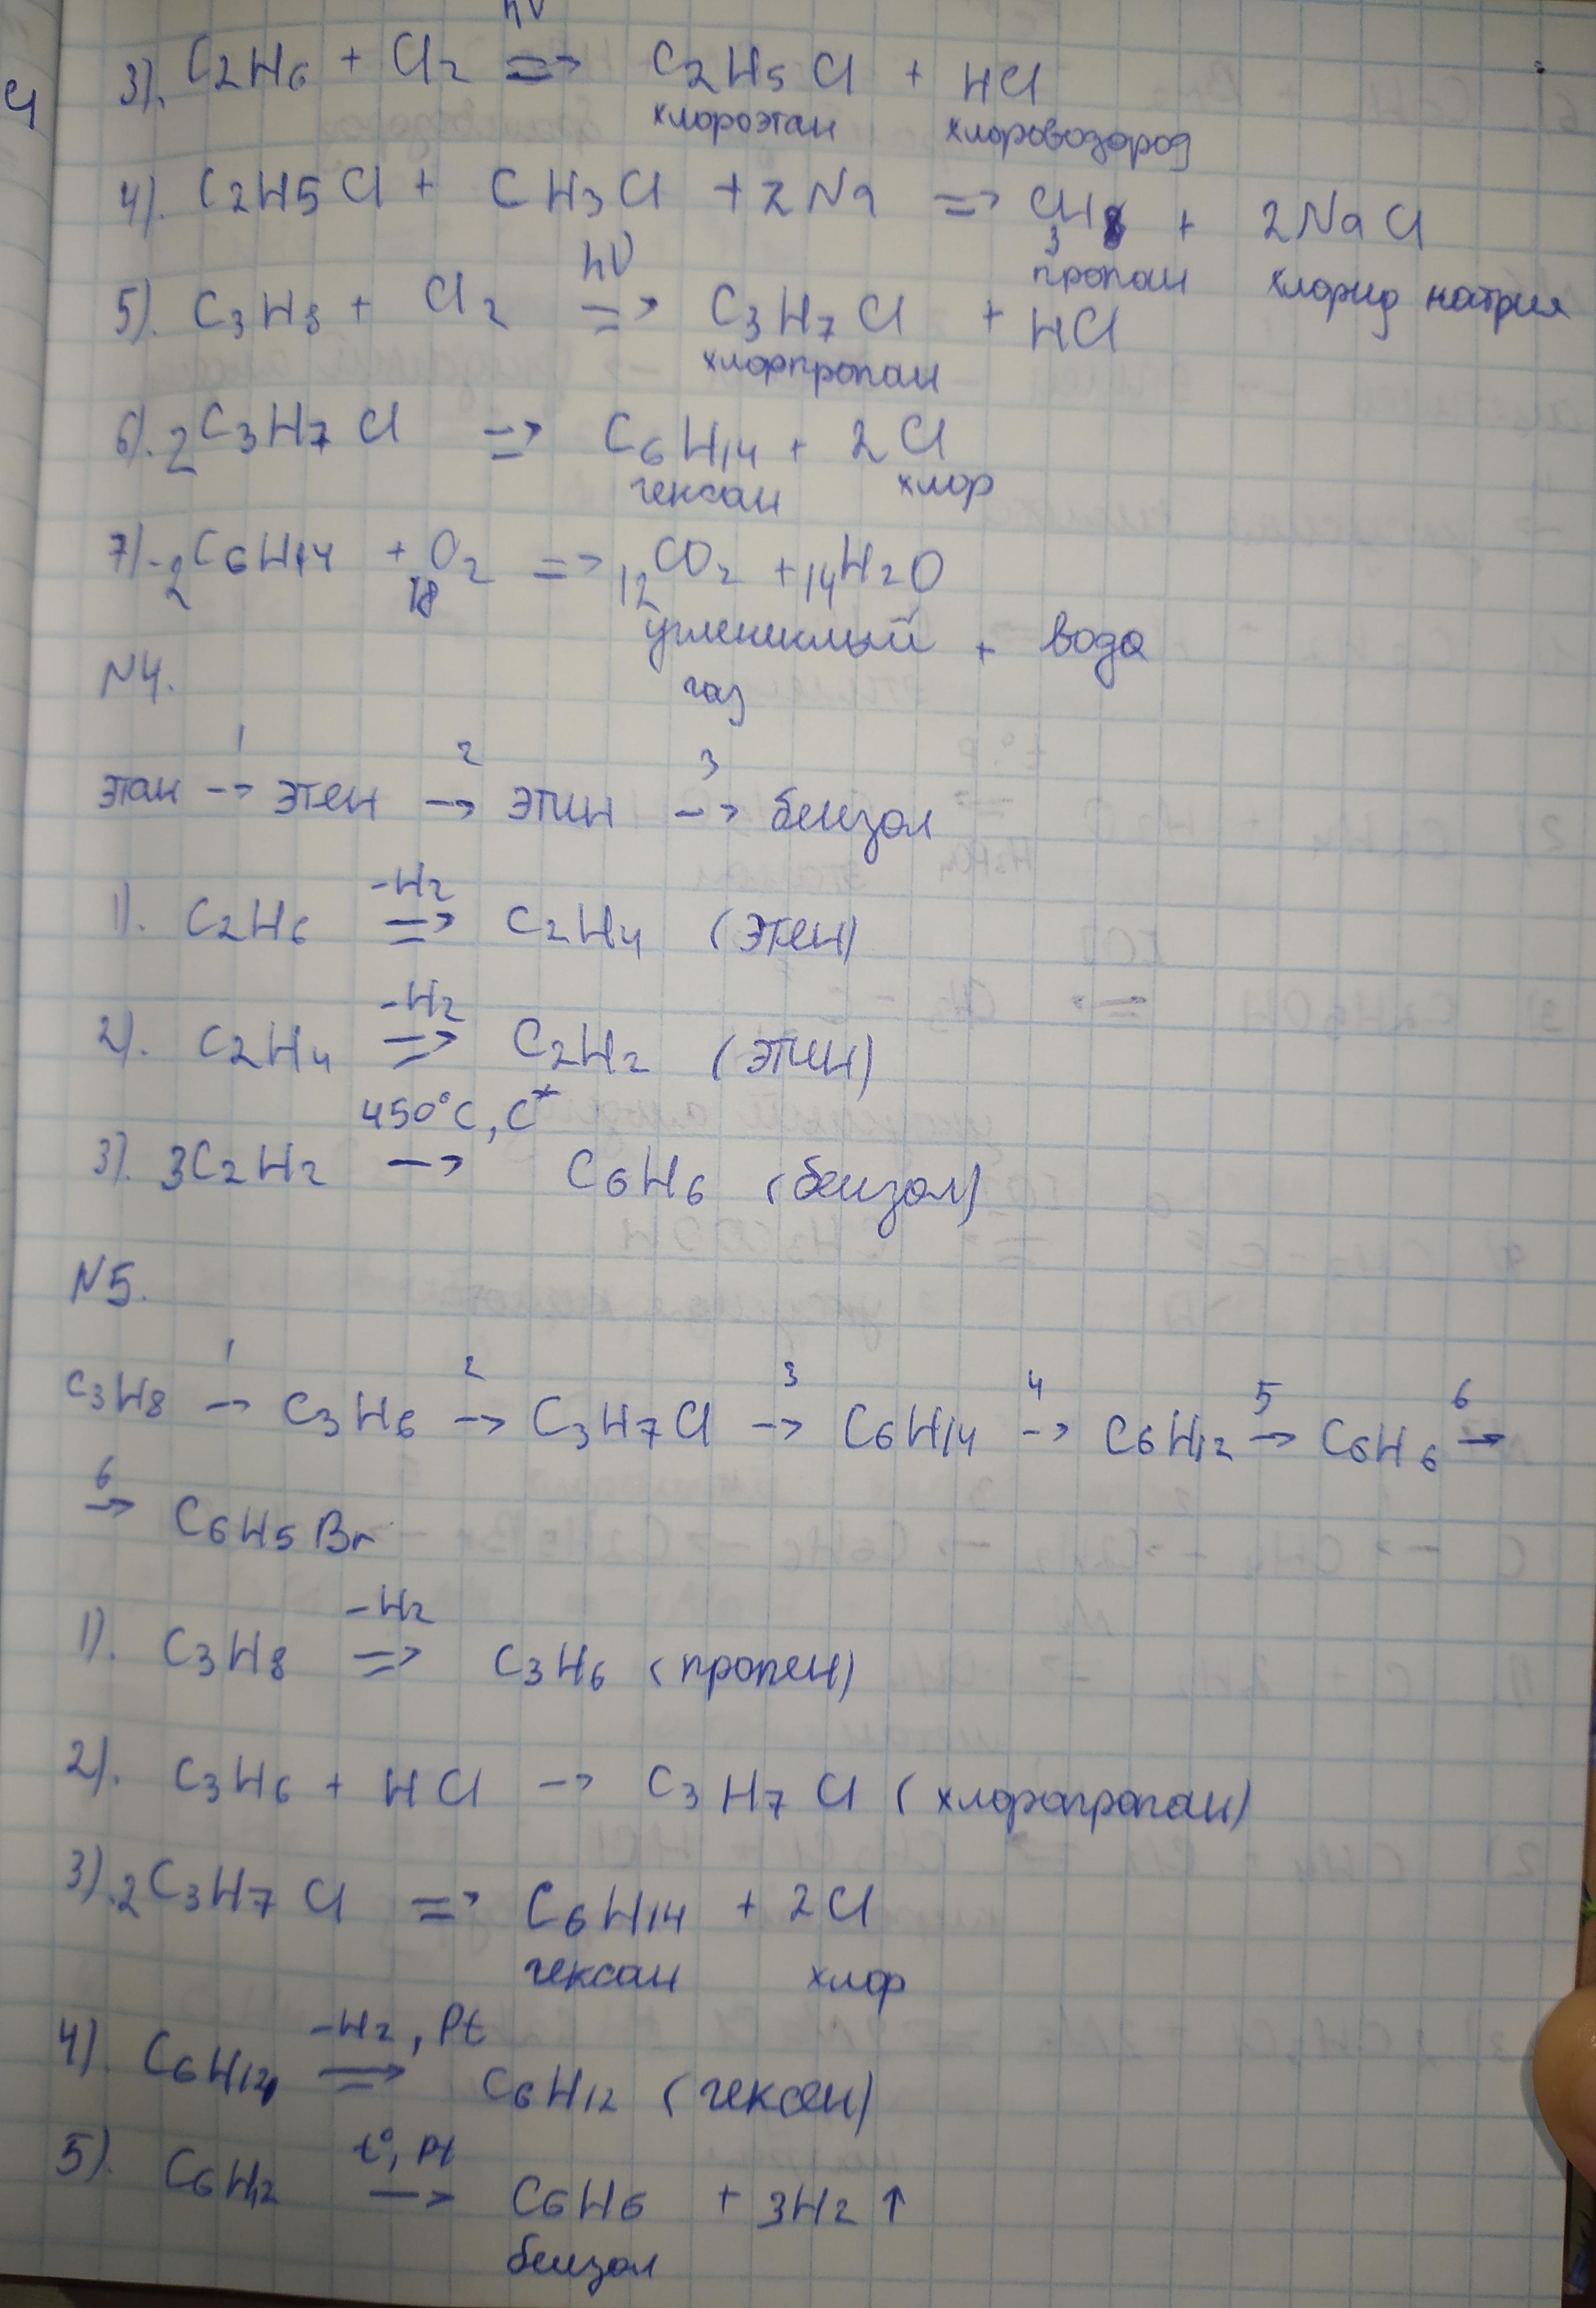 hν
3). C2H6 + Cl2 => C2H5Cl + HCl
хлороэтан хлороводород
4). C2H5Cl + CH3Cl + 2Na => C3H8 + 2NaCl
пропан хлорид натрия
hν
5). C3H8 + Cl2 => C3H7Cl + HCl
хлорпропан
6). 2C3H7Cl => C6H14 + 2Cl
гексан хлор
7). 2C6H14 + 18O2 => 12CO2 + 14H2O
углекислый + вода
газ
N4.
1 2 3
этан -> этен -> этин -> бензол
-H2
1). C2H6 => C2H4 (этен)
-H2
2). C2H4 => C2H2 (этин)
450°C, C*
3). 3C2H2 -> C6H6 (бензол)
N5.
1 2 3 4 5 6
C3H8 -> C3H6 -> C3H7Cl -> C6H14 -> C6H12 -> C6H6 ->
6
-> C6H5Br
-H2
1). C3H8 => C3H6 (пропен)
2). C3H6 + HCl -> C3H7Cl (хлорпропан)
3). 2C3H7Cl => C6H14 + 2Cl
гексан хлор
-H2, Pt
4). C6H14 => C6H12 (гексен)
t°, Pt
5). C6H12 -> C6H6 + 3H2↑
бензол